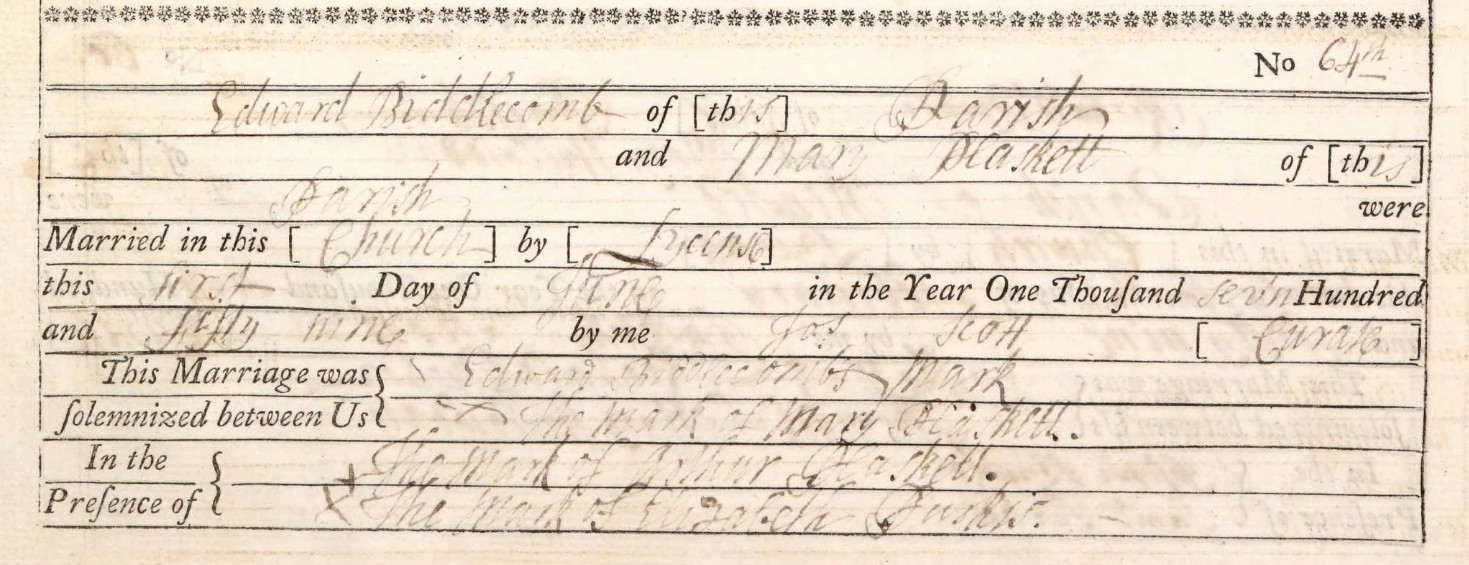 No 64th
Edward Biddlecomb of [this] Parish
and Mary Haskett of [this]
Parish were
Married in this [Church] by [Lycense]
this first Day of June in the Year One Thouſand sevn Hundred
and fifty nine by me Jos Scott [Curate]
This Marriage was Edward Biddlecombs Mark
ſolemnized between Us The Mark of Mary Haskett.
In the The Mark of Arthur Haskett.
Preſence of The Mark of Elizabeth